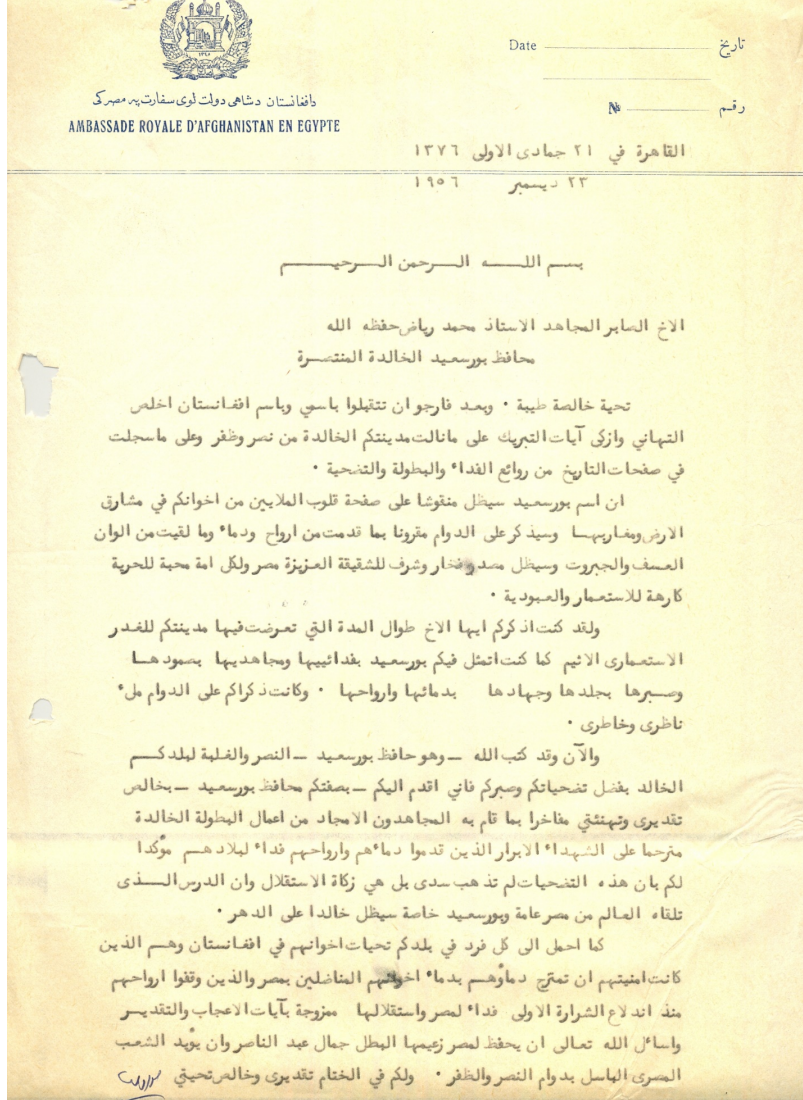 Date تاريخ
№ رقم
دافغانستان دشاهی دولت لوی سفارت په مصر کی
AMBASSADE ROYALE D'AFGHANISTAN EN EGYPTE
القاهرة في ٢١ جمادى الاولى ١٣٧٦
٢٣ ديسمبر ١٩٥٦
بسم اللـــه الـــرحمن الـــرحيـــم
الاخ الصابر المجاهد الاستاذ محمد رياض حفظه الله
محافظ بورسعيد الخالدة المنتصرة
تحية خالصة طيبة ٠ وبعد فارجو ان تتقبلوا باسمي وباسم افغانستان اخلص
التهاني وازكى آيات التبريك على مانالت مدينتكم الخالدة من نصر وظفر وعلى ماسجلت
في صفحات التاريخ من روائع الفداء والبطولة والتضحية ٠
ان اسم بورسعيد سيظل منقوشا على صفحة قلوب الملايين من اخوانكم في مشارق
الارض ومغاربهـا وسيذكر على الدوام مقرونا بما قدمت من ارواح ودماء وما لقيت من الوان
العسف والجبروت وسيظل مصدر فخار وشرف للشقيقة العزيزة مصر ولكل امة محبة للحرية
كارهة للاستعمار والعبودية ٠
ولقد كنت اذكركم ايها الاخ طوال المدة التي تعرضت فيها مدينتكم للغدر
الاستعمارى الاثيم كما كنت اتمثل فيكم بورسعيد بفدائييها ومجاهديها بصمودهـا
وصبرها بجلدها وجهادها بدمائها وارواحها ٠ وكانت ذكراكم على الدوام ملء
ناظرى وخاطرى ٠
والآن وقد كتب الله ــ وهو حافظ بورسعيد ــ النصر والغلبة لبلدكــم
الخالد بفضل تضحياتكم وصبركم فاني اقدم اليكم ــ بصفتكم محافظ بورسعيد ــ بخالص
تقديرى وتهنئتي مفاخرا بما قام به المجاهدون الامجاد من اعمال البطولة الخالدة
مترحما على الشهداء الابرار الذين قدموا دماءهم وارواحهم فداء لبلادهـم مؤكدا
لكم بان هذه التضحيات لم تذهب سدى بل هي زكاة الاستقلال وان الدرس الـــذى
تلقاه العالم من مصر عامة وبورسعيد خاصة سيظل خالدا على الدهر ٠
كما احمل الى كل فرد في بلدكم تحيات اخوانهم في افغانستان وهـم الذين
كانت امنيتهم ان تمتزج دماؤهـم بدماء اخوانهم المناضلين بمصر والذين وقفوا ارواحهم
منذ اندلاع الشرارة الاولى فداء لمصر واستقلالها ممزوجة بآيات الاعجاب والتقديــر
واسائل الله تعالى ان يحفظ لمصر زعيمها البطل جمال عبد الناصر وان يؤيد الشعب
المصرى الباسل بدوام النصر والظفر ٠ ولكم في الختام تقديرى وخالص تحيتي